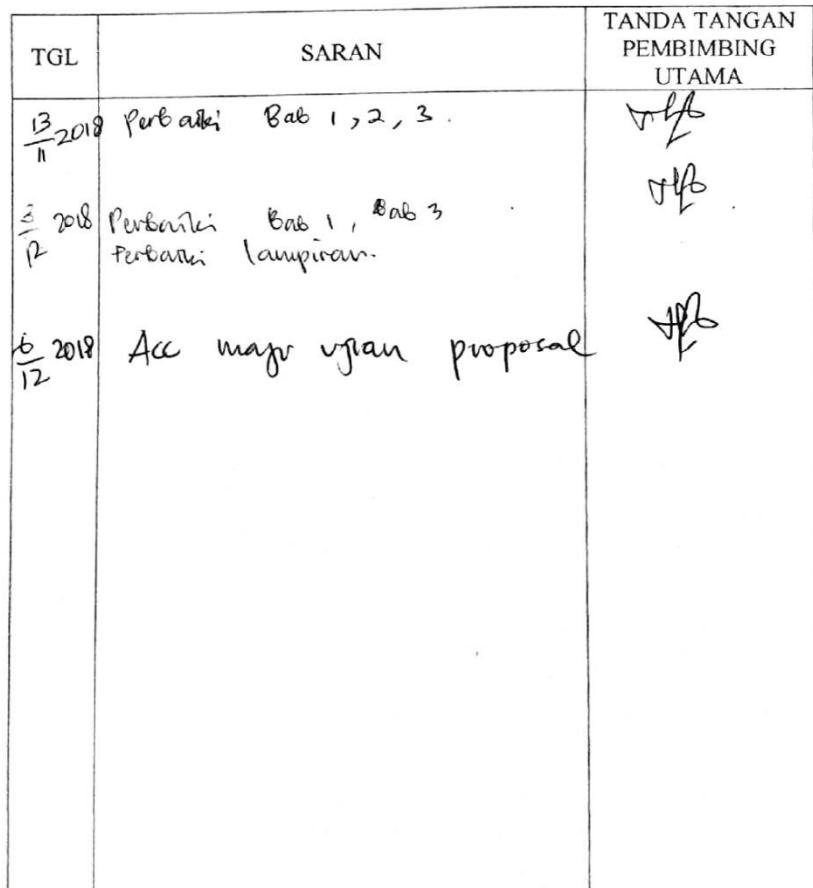 TGL SARAN TANDA TANGAN
PEMBIMBING
UTAMA
13/11 2018 Perbaiki Bab 1, 2, 3.
3/12 2018 Perbaiki Bab 1, Bab 3
Perbaiki lampiran.
6/12 2018 Acc maju ujian proposal